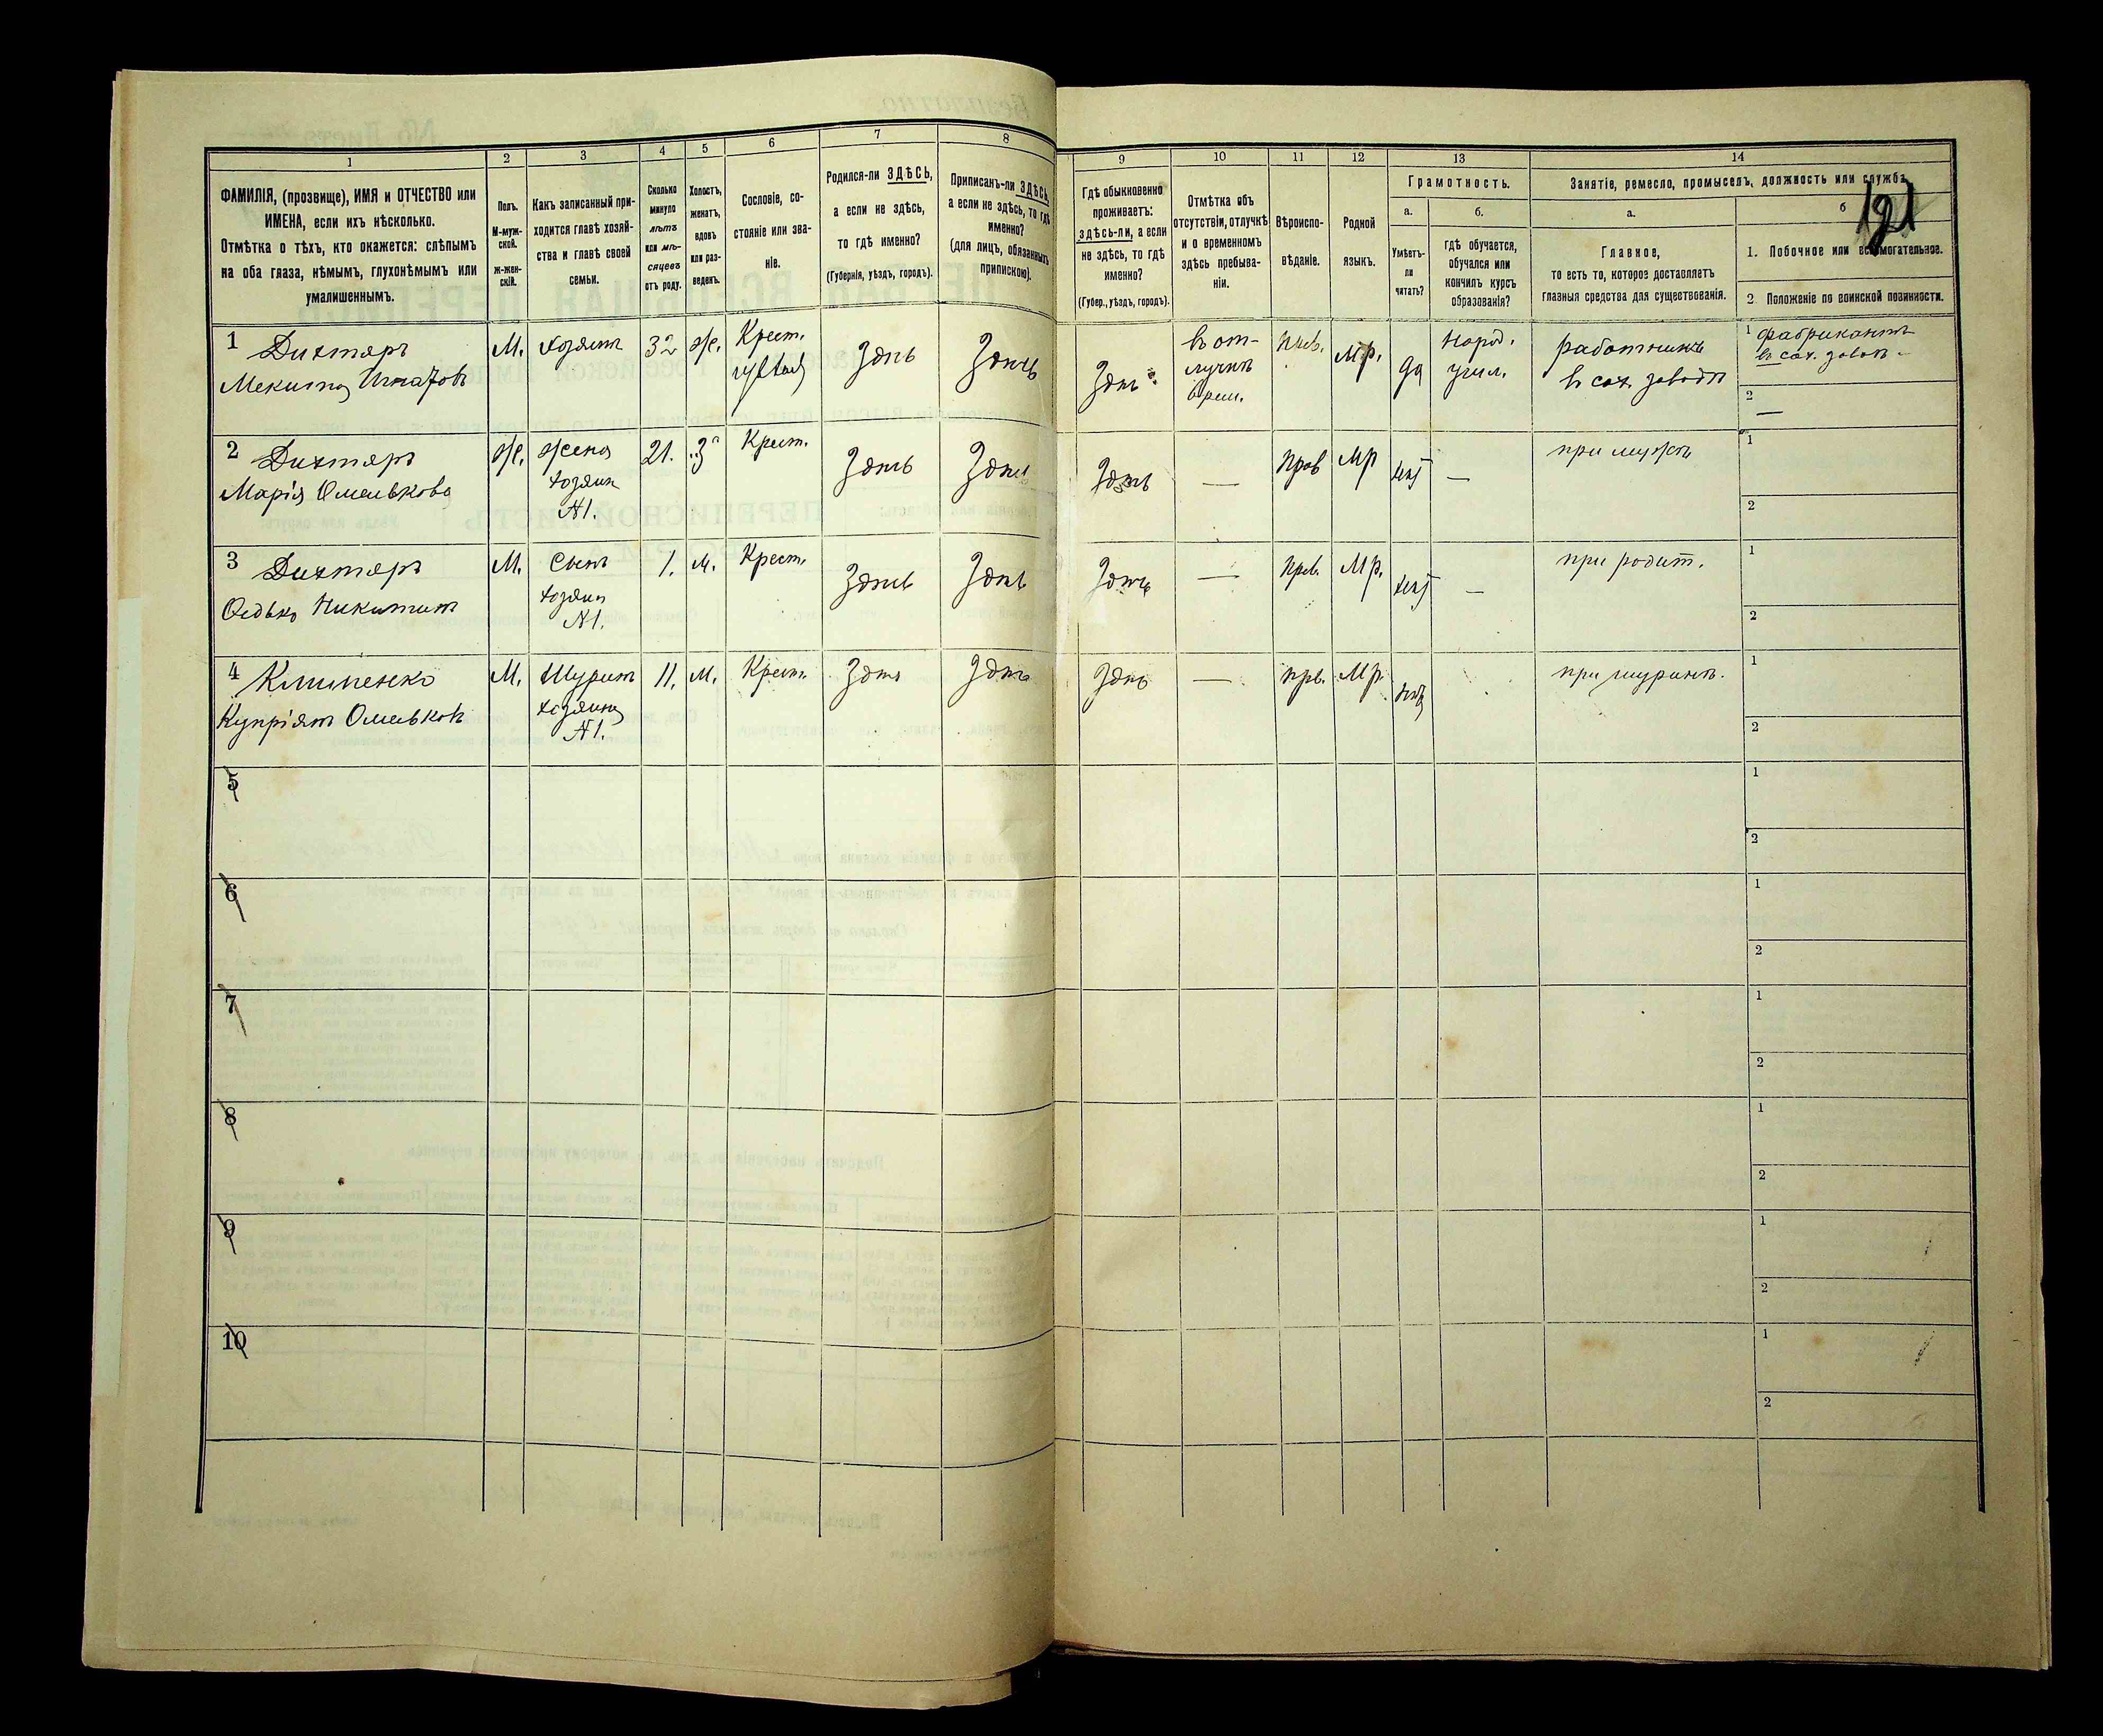 1 2 3 4 5 6 7 8 9 10 11 12 13 14
ФАМИЛІЯ, (прозвище), ИМЯ и ОТЧЕСТВО или
ИМЕНА, если ихъ нѣсколько.
Отмѣтка о тѣхъ, кто окажется: слѣпымъ
на оба глаза, нѣмымъ, глухонѣмымъ или
умалишеннымъ.
Полъ.
М-муж-
ской.
ж-жен-
скій.
Какъ записанный при-
ходится главѣ хозяй-
ства и главѣ своей
семьи.
Сколько
минуло
лѣтъ
или мѣ-
сяцевъ
отъ роду.
Холостъ,
женатъ,
вдовъ
или раз-
веденъ.
Сословіе, со-
стояніе или зва-
ніе.
Родился-ли ЗДѢСЬ,
а если не здѣсь,
то гдѣ именно?
(Губернія, уѣздъ, городъ).
Приписанъ-ли ЗДѢСЬ,
а если не здѣсь, то гдѣ
именно?
(для лицъ, обязанныхъ
припискою).
Гдѣ обыкновенно
проживаетъ:
здѣсь-ли, а если
не здѣсь, то гдѣ
именно?
(Губер., уѣздъ, городъ).
Отмѣтка объ
отсутствіи, отлучкѣ
и о временномъ
здѣсь пребыва-
ніи.
Вѣроиспо-
вѣданіе.
Родной
языкъ.
Грамотность.
а.
Умѣетъ-
ли
читать?
б.
гдѣ обучается,
обучался или
кончилъ курсъ
образованія?
Занятіе, ремесло, промыселъ, должность или служба
а.
Главное,
то есть то, которое доставляетъ
главныя средства для существованія.
б
1. Побочное или вспомогательное.
2 Положеніе по воинской повинности.
1 Дихтяръ
М. хозяинъ 32 ж. Крест. Здѣсь Здѣсь Здѣсь
въ от-
лучкѣ
врем.
Прав. Мр. да
народ.
учил.
работникъ
въ сах. заводѣ
1
въ сах. завод
2 —
2 Дихтяръ
Марія Омелькова
ж. жена
хозяин
№1.
21. Крест. Здѣсь Здѣсь Здѣсь — Прав Мр нѣт — при мужѣ
1
2
3 Дихтяръ
Федько Никитинъ
М. Сынъ
хозяин
№1.
1. М. Крест. Здѣсь Здѣсь Здѣсь — Прав. Мр. нѣт — при родит.
1
2
4 Клименко
Купріянъ Омельковъ
М. Шуринъ
хозяина
№1.
11. М. Крест. Здѣсь Здѣсь Здѣсь — прв. Мр нѣт при шуринѣ.
1
2
5
1
2
6
1
2
7
1
2
8
1
2
9
1
2
10
1
2